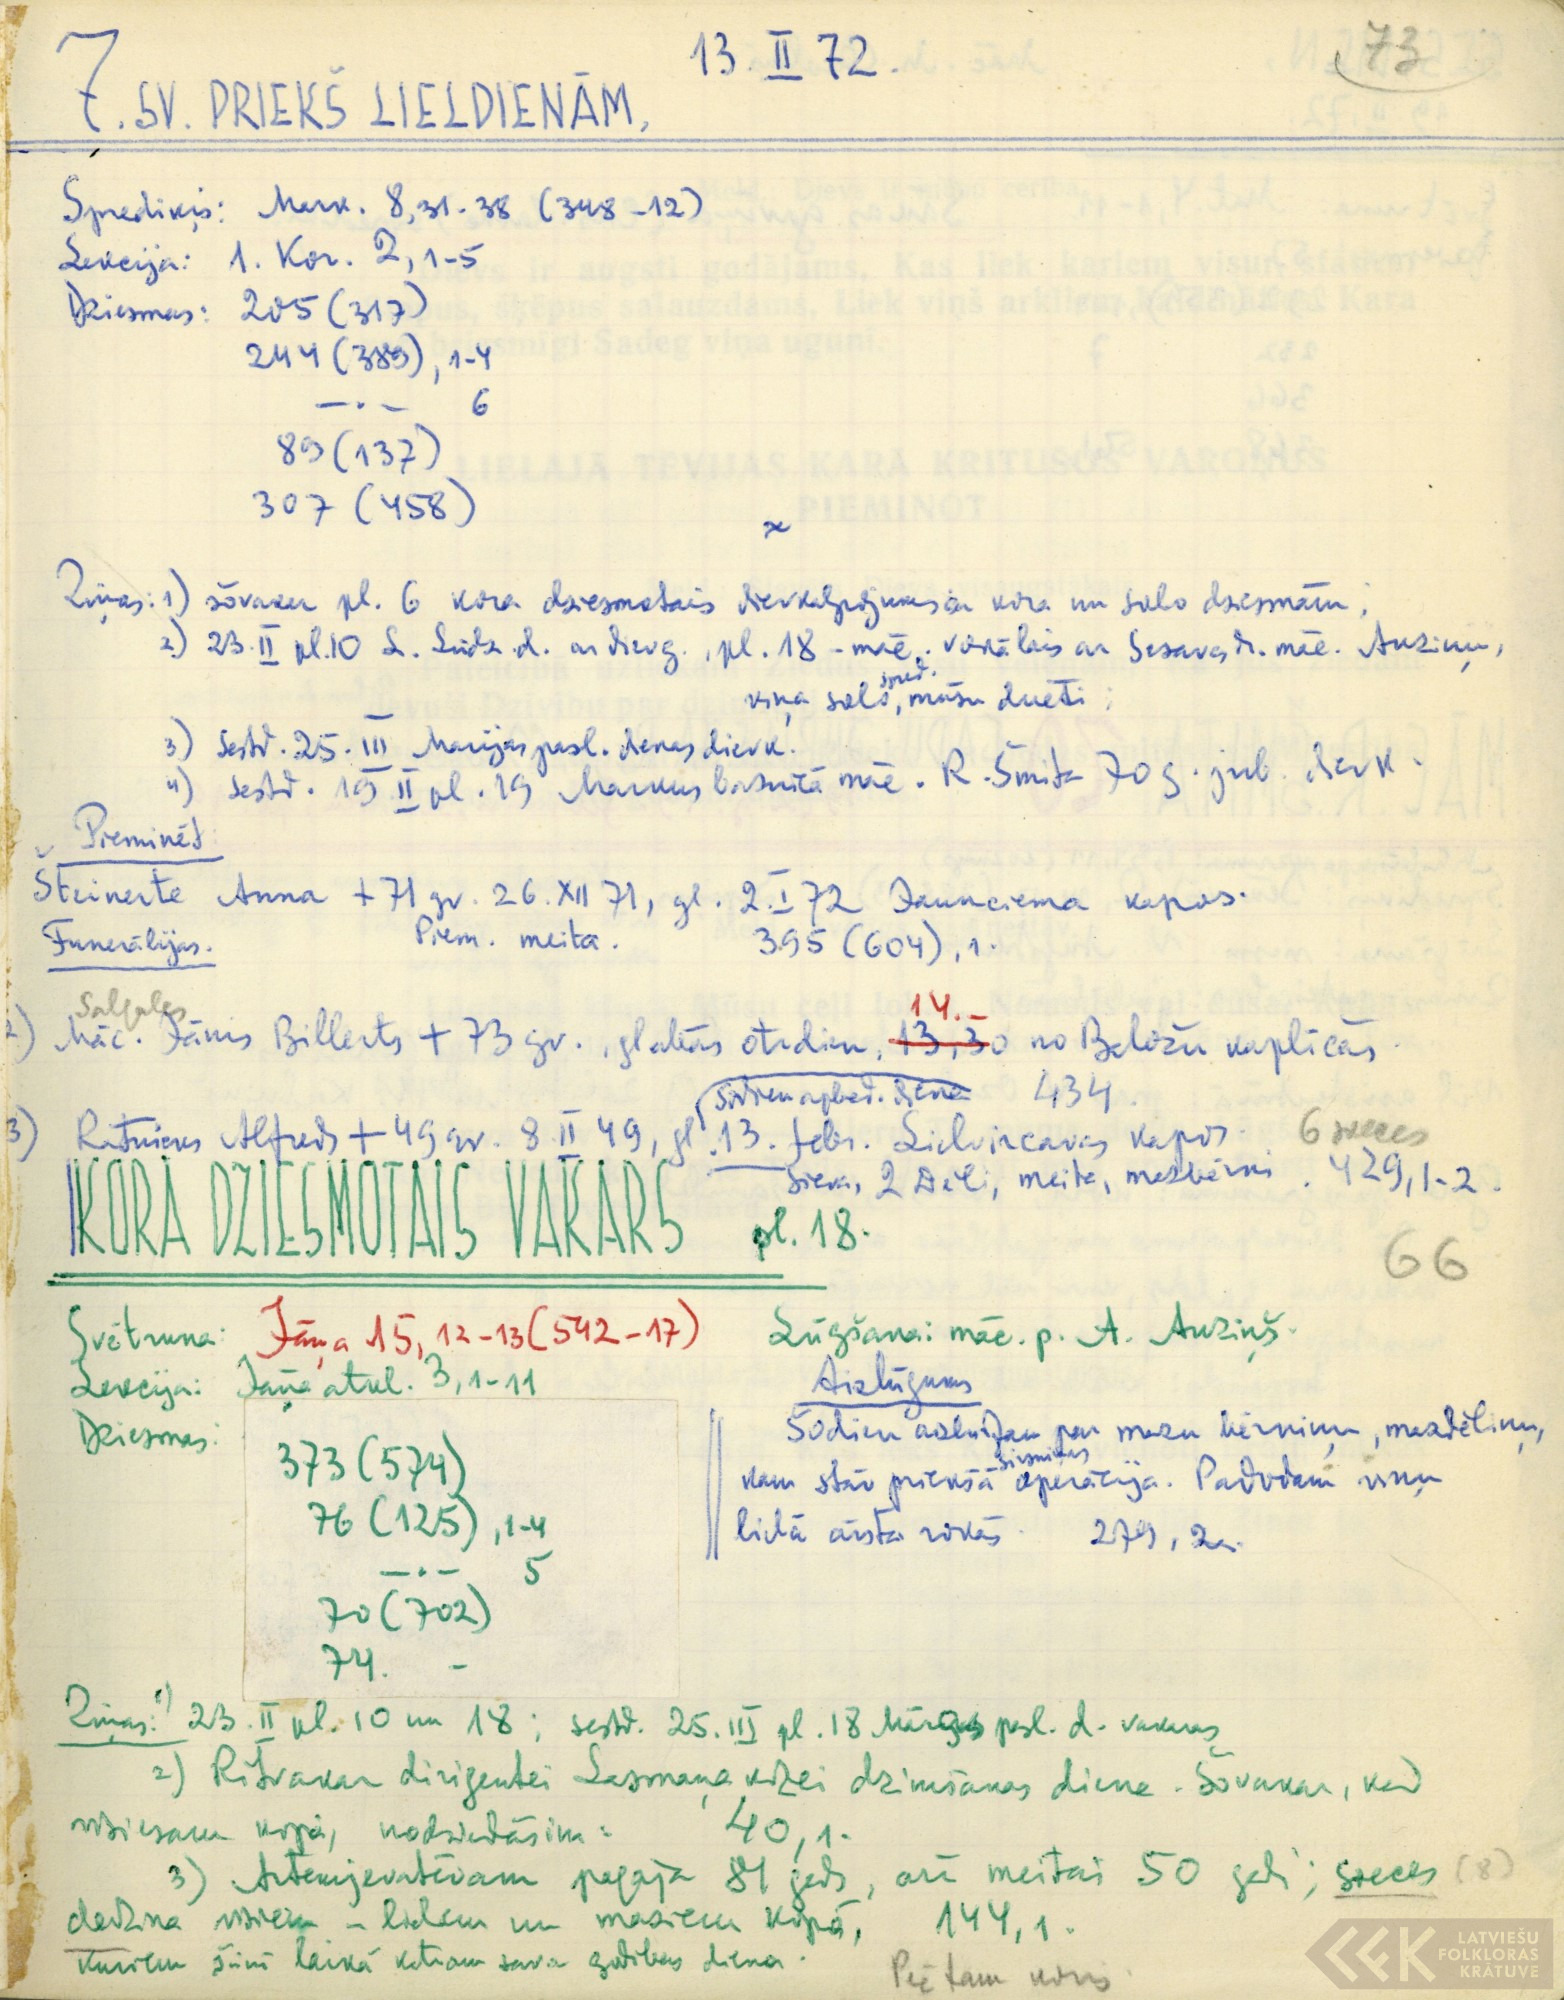 13. II 72.
73
7. SV. PRIEKŠ LIELDIENĀM,
Sprediķis: Mark. 8,31-38 (348-12)
Lekcija: 1. Kor. 2, 1-5
Dziesmas: 205 (317)
244 (389), 1-4
—.— 6
89 (137)
307 (458)
x
Ziņas: 1) šovakar pl. 6 kora dziesmotais dievkalpojums ar kora un solo dziesmām;
2) 23. II pl. 10 L. Lūdz. d. ar dievg., pl. 18 - māc. vokālais ar Sesavas dr. māc. Auziņu,
viņa solo, spred. māsu dueti;
3) sestd. 25. III Marijas pasl. dienas dievk.
4) sestd. 19 II pl. 19 Markus baznīcā māc. R. Šmita 70 g. jub. dievk.
Pieminēt:
Šteinerte Anna + 71 gv. 26. XII 71, gl. 2. I 72 Jaunciema kapos.
Funerālijas. Piem. meita. 395 (604), 1.
Salgales
2) Māc. Jānis Billerts + 73 gv., glabās otrdien, 13,30 14.- no Beložu kapličas.
šodien apbed. diena 434.
3) Ratnieks Alfreds + 49 gv. 8 II 49, gl. 13. febr. Lielvircavas kapos. 6 sveces
sieva, 2 dēli, meita, mazbērni. 429, 1-2.
KORA DZIESMOTAIS VAKARS pl. 18.
66
Svētruna: Jāņa 15, 12-13 (542-17) Lūgšana: māc. p. A. Auziņš.
Lekcija: Jāņa atkl. 3, 1-11
Aizlūgums
Dziesmas: 373 (574)
76 (125), 1-4
—.— 5
70 (702)
74. -
Šodien aizlūdzam par mazu bērniņu, mazdēliņu,
kam stāv priekšā sirsniņas operācija. Padodam viņu
lielā ārsta rokās. 279, 2.
Ziņas: 1) 23. II pl. 10 un 18; sestd. 25. III pl. 18 Mārijas pasl. d. vakars
2) Rītvakar diriģentei Lasmaņa kdzei dzimšanas diena. Šovakar, kad
visi esam kopā, nodziedāsim: 40, 1.
3) Artemjeva tēvam pagāja 81 gads, arī meitai 50 gadi; sveces (8)
dedzina visiem - lieliem un maziem kopā, 144, 1.
kuriem šinī laikā katram sava godības diena.
Pēc tam koris
LATVIEŠU
FOLKLORAS
KRĀTUVE